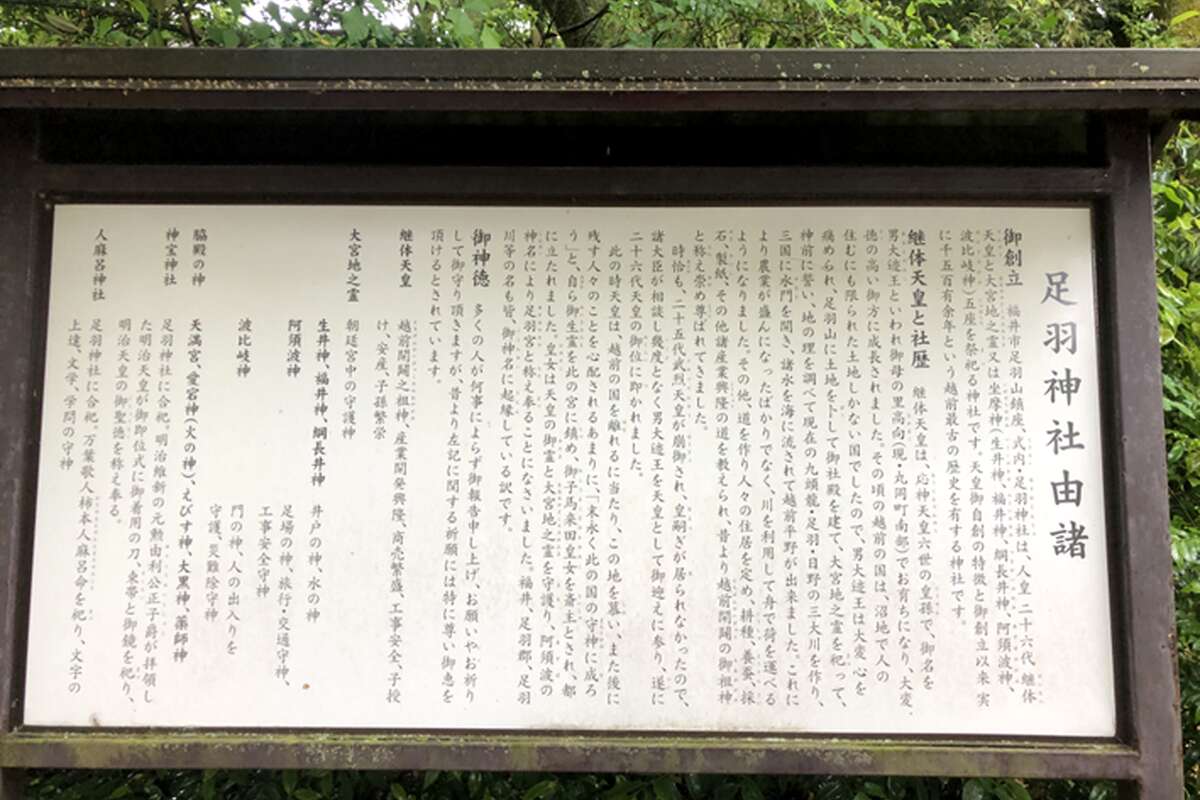 足羽神社由諸
御創立　福井市足羽山鎮座、式内・足羽神社は、人皇二十六代継体
天皇と大宮地之霊又は坐摩神(生井神、福井神、綱長井神、阿須波神、
波比岐神)五座を祭祀る神社です。天皇御自創の特徴と御創立以来実
に千五百有余年という越前最古の歴史を有する神社です。
継体天皇と社歴　継体天皇は、応神天皇六世の皇孫で、御名を
男大迹王といわれ御母の里高向(現・丸岡町南部)でお育ちになり、大変、
徳の高い御方に成長されました。その頃の越前の国は、沼地で人の
住むにも限られた土地しかない国でしたので、男大迹王は大変、心を
痛められ、足羽山に土地を卜して御社殿を建て、大宮地之霊を祀って、
神前に誓い、地の理を調べて現在の九頭龍・足羽・日野の三大川を作り、
三国に水門を開き、諸水を海に流されて越前平野が出来ました。これに
より農業が盛んになったばかりでなく、川を利用して舟で荷を運べる
ようになりました。その他、道を作り人々の住居を定め、耕種、養蚕、採
石、製紙、その他諸産業興隆の道を教えられ、昔より越前開闢の御祖神
と称え崇め尊ばれてきました。
時恰も、二十五代武烈天皇が崩御され、皇嗣ぎが居られなかったので、
諸大臣が相談し幾度となく男大迹王を天皇として御迎えに参り、遂に
二十六代天皇の御位に即かれました。
此の時天皇は、越前の国を離れるに当たり、この地を慕い、また後に
残す人々のことを心配されるあまりに、「末永く此の国の守神に成ろ
う」と、自ら御生霊を此の宮に鎮め、御子馬来田皇女を斎王とされ、都
に立たれました。皇女は天皇の御霊と大宮地之霊を守護り、阿須波の
神名により足羽宮と称え奉ることになさいました。福井、足羽郡、足羽
川等の名も皆、御神名に起縁している訳です。
御神徳　多くの人が何事によらず御報告申し上げ、お願いやお祈り
して御守り頂きますが、昔より左記に関する祈願には特に尊い御恵を
頂けるとされています。
継体天皇　越前開闢之祖神、産業開発興隆、商売繁盛、工事安全、子授
け、安産、子孫繁栄
大宮地之霊　朝廷宮中の守護神
生井神、福井神、綱長井神　井戸の神、水の神
阿須波神　足場の神、旅行・交通守神、
工事安全守神
波比岐神　門の神、人の出入りを
守護、災難除守神
脇殿の神　天満宮、愛宕神(火の神)、えびす神、大黒神、薬師神
神宝神社　足羽神社に合祀。明治維新の元勲由利公正子爵が拝領し
た明治天皇が御即位式に御着用の刀、束帯と御鏡を祀り、
明治天皇の御聖徳を称え奉る。
人麻呂神社　足羽神社に合祀。万葉歌人柿本人麻呂命を祀り、文字の
上達、文学、学問の守神